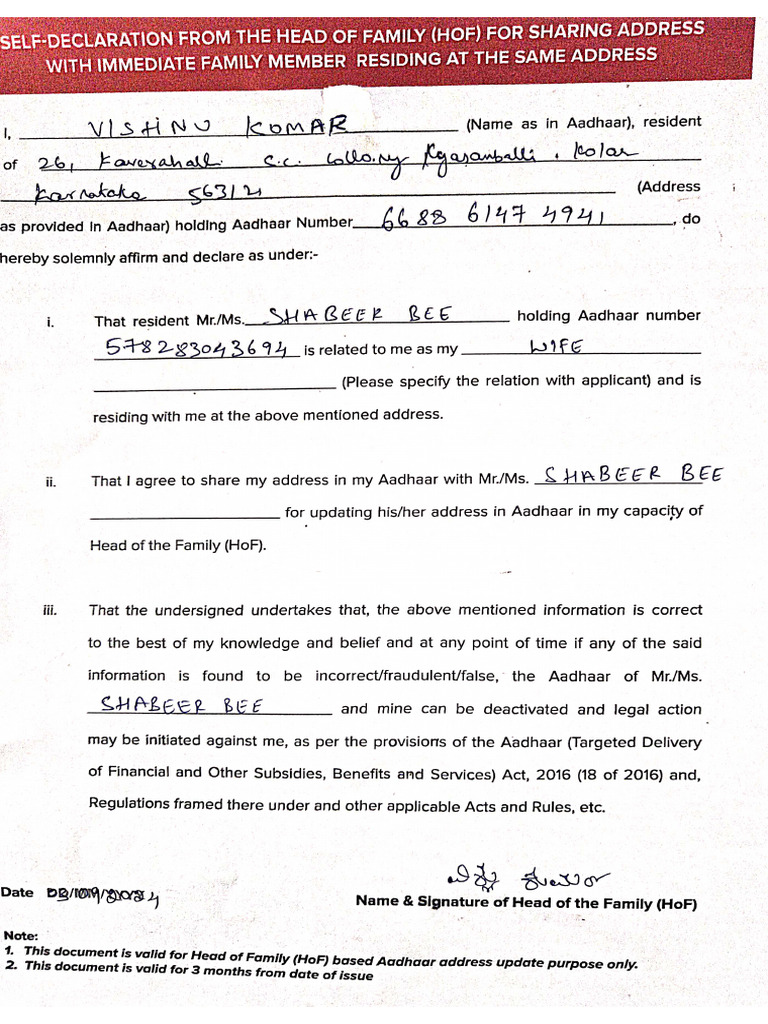 SELF-DECLARATION FROM THE HEAD OF FAMILY (HOF) FOR SHARING ADDRESS
WITH IMMEDIATE FAMILY MEMBER RESIDING AT THE SAME ADDRESS
I, VISHNU KOMAR (Name as in Aadhaar), resident
of 26, Kaverahall. C.C. Collony Kgasanballi, Kolar
Karnataka 563121 (Address
as provided in Aadhaar) holding Aadhaar Number 6688 6147 4941, do
hereby solemnly affirm and declare as under:-
i. That resident Mr./Ms. SHABEER BEE holding Aadhaar number
578283043694 is related to me as my WIFE
(Please specify the relation with applicant) and is
residing with me at the above mentioned address.
ii. That I agree to share my address in my Aadhaar with Mr./Ms. SHABEER BEE
for updating his/her address in Aadhaar in my capacity of
Head of the Family (HoF).
iii. That the undersigned undertakes that, the above mentioned information is correct
to the best of my knowledge and belief and at any point of time if any of the said
information is found to be incorrect/fraudulent/false, the Aadhaar of Mr./Ms.
SHABEER BEE and mine can be deactivated and legal action
may be initiated against me, as per the provisions of the Aadhaar (Targeted Delivery
of Financial and Other Subsidies, Benefits and Services) Act, 2016 (18 of 2016) and,
Regulations framed there under and other applicable Acts and Rules, etc.
Date
Name & Signature of Head of the Family (HoF)
Note:
1. This document is valid for Head of Family (HoF) based Aadhaar address update purpose only.
2. This document is valid for 3 months from date of issue